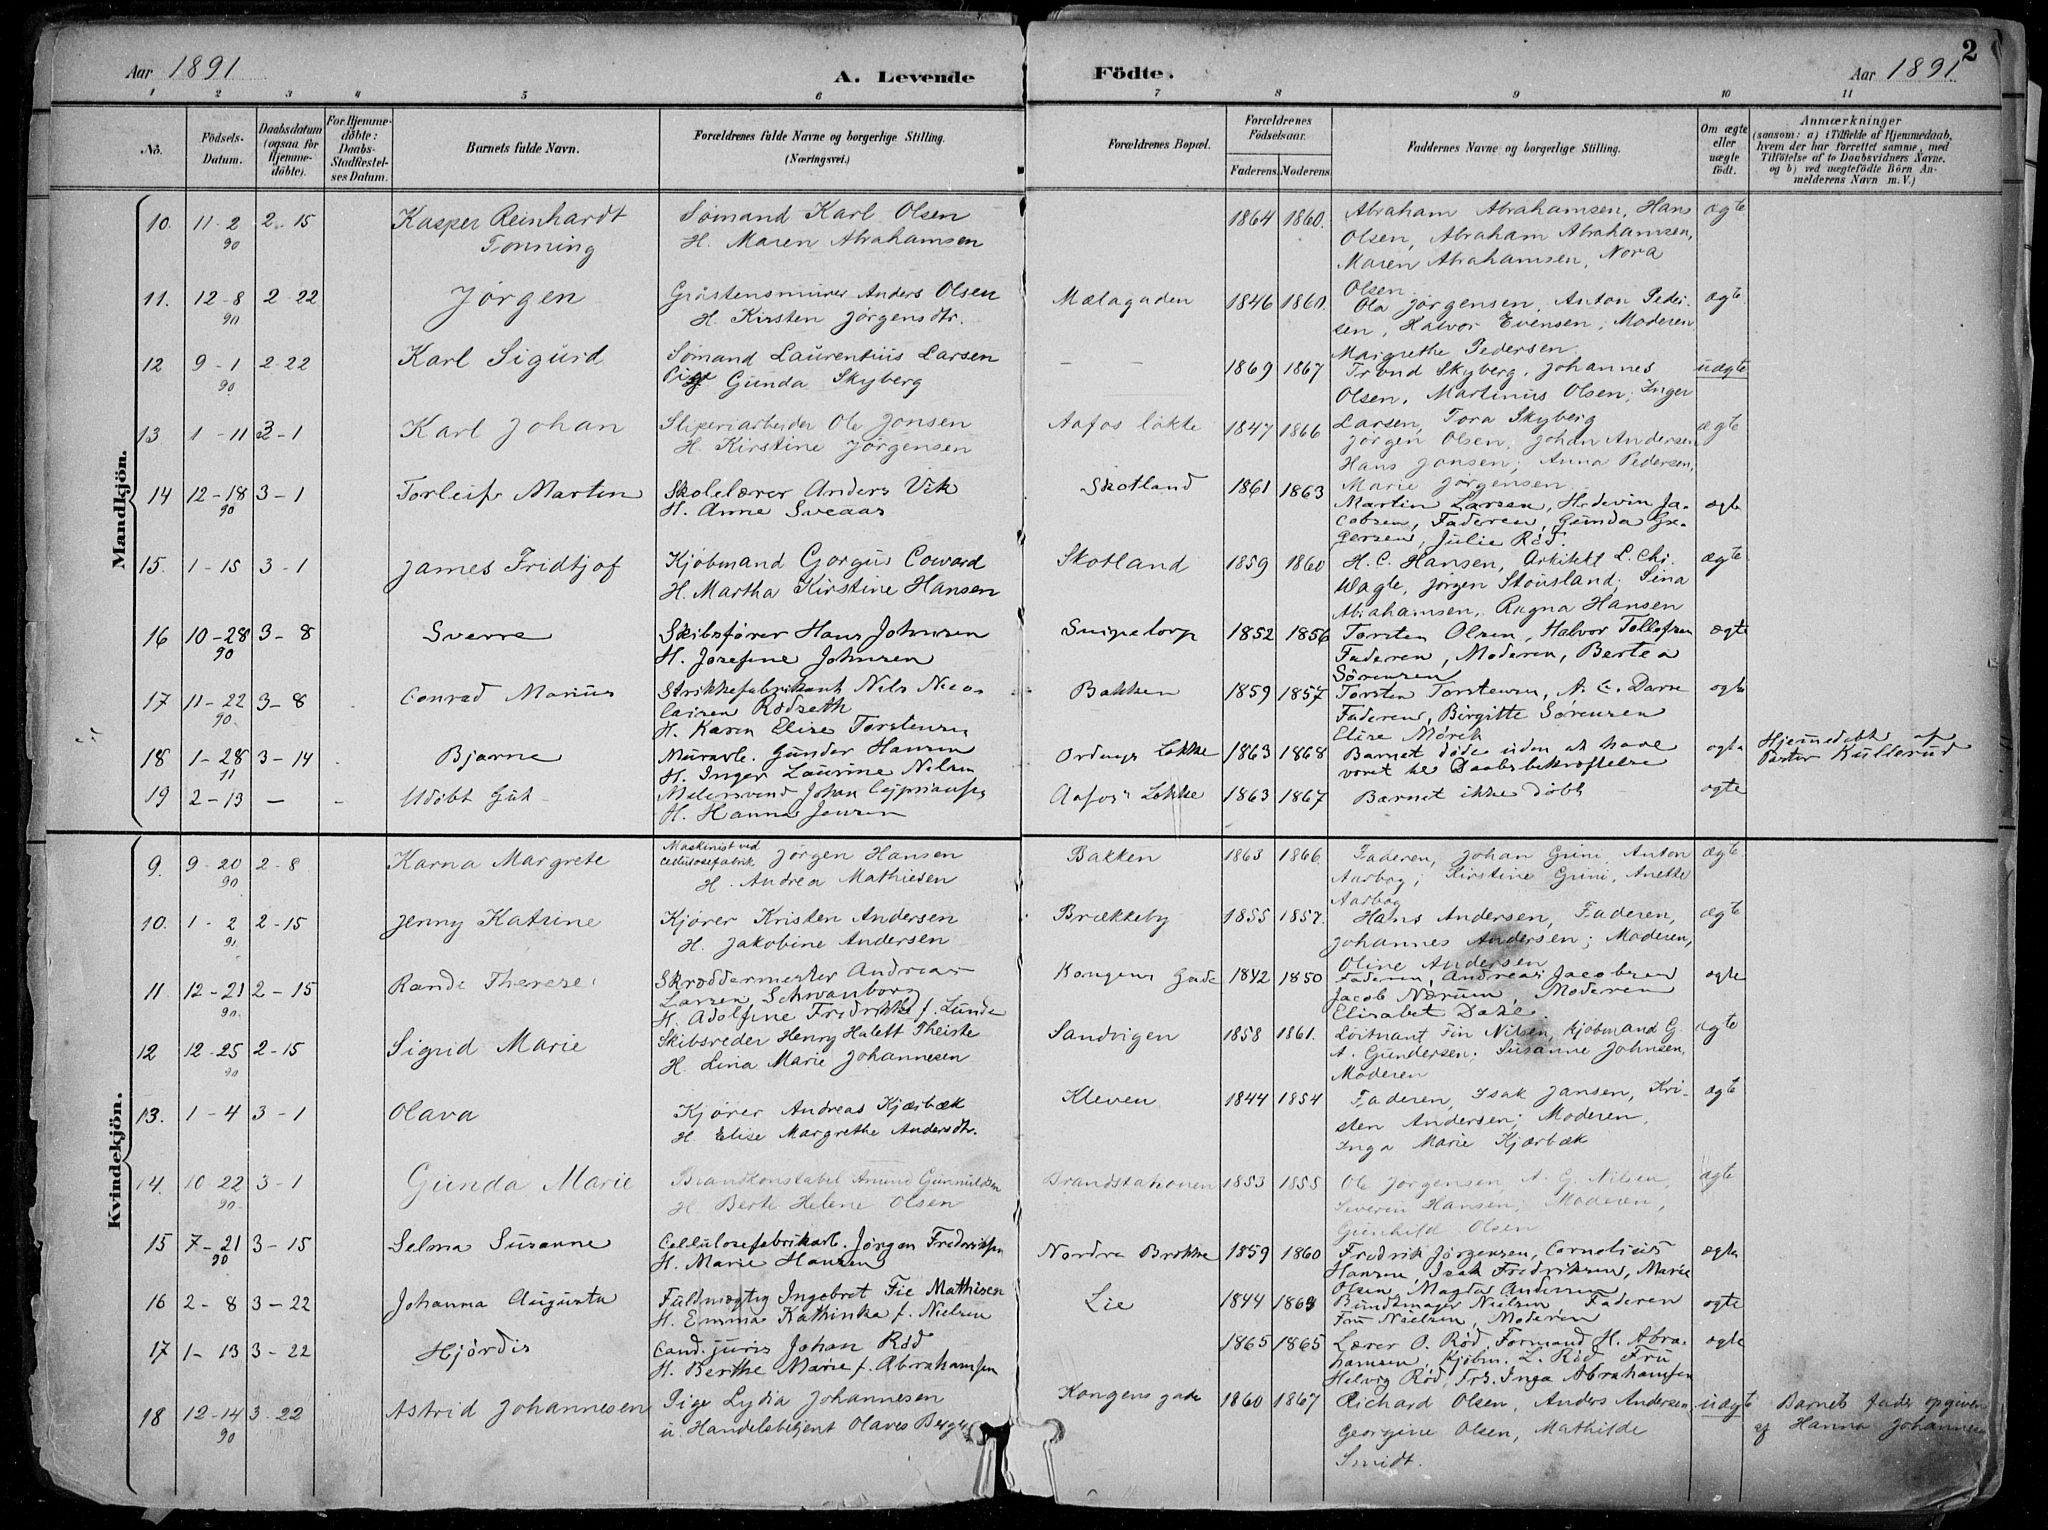 Aar 1891
A. Levende Födte.
Aar 1891
2
1 2 3 4 5 6 7 8 9 10 11
No.
Födsels-Datum.
Daabsdatum (ogsaa for Hjemme-döbte).
For Hjemme-döbte: Daabs-Stadfæstel-ses Datum.
Barnets fulde Navn.
Forældrenes fulde Navne og borgerlige Stilling. (Næringsvei.)
Forældrenes Bopæl.
Forældrenes Födselsaar.
Faderens. Moderens.
Faddernes Navne og borgerlige Stilling.
Om ægte eller uægte födt.
Anmærkninger
(saasom: a) i Tilfælde af Hjemmedaab,
hvem der har forrettet samme, med
Tilföielse af to Daabsvidners Navne.
og b) ved uægtefödte Börn An-
melderens Navn m. V.)
Mandkjön.
10. 11-2 90 2-15 Kasper Reinhardt Tønning Sømand Karl Olsen H. Maren Abrahamsen 1864 1860. Abraham Abrahamsen, Hans ægte
Olsen, Abraham Abrahamsen,
Maren Abrahamsen, Nora
Olsen
11. 12-8 90 2-22 Jørgen Gråstensmurer Anders Olsen H. Kirsten Jørgensdtr. Mælagaden 1846 1860. Ola Jørgensen, Anton Peder- ægte
sen, Halvor Evensen; Moderen
Margrethe Pedersen
12 9-1 90 2-22 Karl Sigurd Sømand Laurentius Larsen Pige Gunda Skyberg - - 1869 1867 Trond Skyberg, Johannes uægte
Olsen, Martinus Olsen; Inger
Larsen, Tora Skyberg
13 1-11 3-1 Karl Johan Sliperiarbeider Ole Jonsen H. Kirstine Jørgensen Aafos løkke 1847 1866 Jørgen Olsen, Johan Andersen ægte
Hans Jonsen; Anna Pedersen,
Marie Jørgensen
14 12-18 90 3-1 Torleif Martin Skolelærer Anders Vik H. Anne Sveaas Skotland 1861 1863 Martin Larsen, Hedevin Ja- ægte
cobsen, Faderen, Gunda Gre-
gersen, Julie Rød.
15. 1-15 3-1 James Fridtjof Kjøbmand Gorgus Coward H. Martha Kirstine Hansen Skotland 1859 1860 H. C. Hansen, Arkitekt L. Chr. ægte
Wagle, Jørgen Stousland; Sina
Abrahamsen, Ragna Hansen
16 10-28 90 3-8 Sverre Skibsfører Hans Johnsen H. Josefine Johnsen Snipetorp 1852 1856 Torsten Olsen, Halvor Tollefsen ægte
Faderen, Moderen, Bertea
Sørensen
17 11-22 90. 3-8 Conrad Marius Strikkefabrikant Nils Nico- laisen Rødseth H. Karen Elise Torstensen Bakken 1859 1857 Torsten Torstensen, A. E. Dame ægte
Faderen, Birgitte Sørensen
Elise Mørck
18 1-28 3-14 Bjarne Murarb. Gunder Hansen H. Inger Laurine Nilsen Ordrups Løkke 1863 1868 Barnet døde uden at have ægte Hjemmedøbt af
været til Daabsbekræftelse Pastor Kullerud
19 2-13 - - Udøbt Gut Mølersvend Johan Cyprianssen H. Hanna Jensen Aafos Løkke 1863 1867 Barnet ikke døbt ægte
Kvindekjön.
9. 9-20 90 2-8 Karna Margrete Maskinist ved Cellulosefabrik Jørgen Hansen H. Andrea Mathiesen Bakken 1863 1866. Faderen, Johan Grini, Anton ægte
Aarbog; Kirstine Grini, Anette
Aarbog
10. 1-2 91. 2-15 Jenny Katrine Kjører Kristen Andersen H. Jakobine Andersen Brækkeby 1855 1857. Hans Andersen, Faderen, ægte
Johannes Andersen; Moderen,
Oline Andersen
11 12-21 90. 2-15 Rande Therese Skræddermester Andreas Larsen Schwanborg H. Adolfine Fredrikke f. Lunde Kongens Gade 1842 1850 Faderen, Andreas Jacobsen ægte
Jacob Nærum, Moderen
Elisabet Daze.
12 12-25 90 2-15 Sigrid Marie Skibsreder Henry Halett Theiste H. Lina Marie Johannesen Sandvigen 1858 1861. Løitnant Fin Nilsen, Kjøbmand G. ægte
A. Gundersen; Susanne Johnsen,
Moderen
13. 1-4 3-1 Olava Kjører Andreas Kjærbæk H. Elise Margrethe Andersdtr. Kleven 1844 1854 Faderen, Isak Jansen, Kri- ægte
sten Andersen; Moderen,
Inga Marie Kjærbæk
14. 10-22 90. 3-1 Gunda Marie Brandkonstabel Amund Gunnuldsen H. Berte Helene Olsen Brandstationen 1853 1855 Ole Jørgensen, A. G. Nilsen, ægte
Severin Hansen; Moderen,
Gunhild Olsen
15 7-21 90 3-15 Selma Susanne Cellulosefabrikarb. Jørgen Frederiksen H. Marie Hansen Nordre Brække 1859 1860 Fredrik Jørgensen, Cornelius ægte
Hansen, Isak Fredriksen, Marie
Olsen, Magda Andersen
16 2-8 3-22 Johanna Augusta Fuldmægtig Ingebret Fie Mathisen H. Emma Kathinka f. Nielsen Lie 1844 1863 Bundtmager Nielsen, Faderen ægte
Fru Nielsen, Moderen
17 1-13 3-22 Hjørdis Cand. juris Johan Rød H. Berthe Marie f. Abrahamsen 1865 1865 Lærer O. Rød, Formand H. Abra- ægte
hamsen, Kjøbm. L. Rød Fru
Helvig Rød, Frk. Inga Abrahamsen
18 12-14 90 3-22 Astrid Johannesen Pige Lydia Johannesen u. Handelsbetjent Olaves Berge Kongens gade 1860 1867 Richard Olsen, Anders Andersen, uægte Barnets fader opgiven
Georgine Olsen, Mathilde af Hanna Johannesen
Smidt.